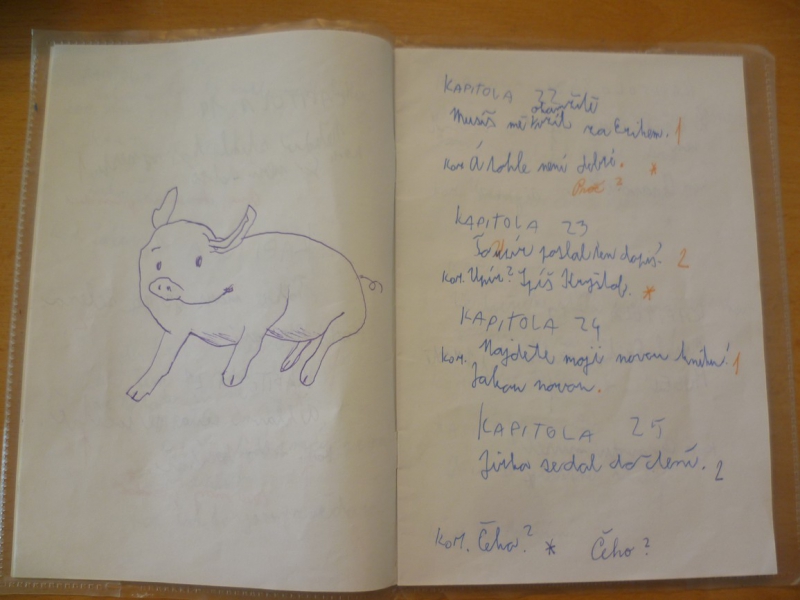 KAPITOLA 22
otevřítě
Musíš mě za Erikem. 1
Kom. A tohle není dobré. *
Proč?
KAPITOLA 23
To upír poslal ten dopis! 2
Kom. Upír? Spíš Kryštof. *
KAPITOLA 24
Kom. Najdete moji novou knihu! 1
Jakou novou.
KAPITOLA 25
Jirka se dal do čtení. 2
KOM. Čeho? * Čeho?